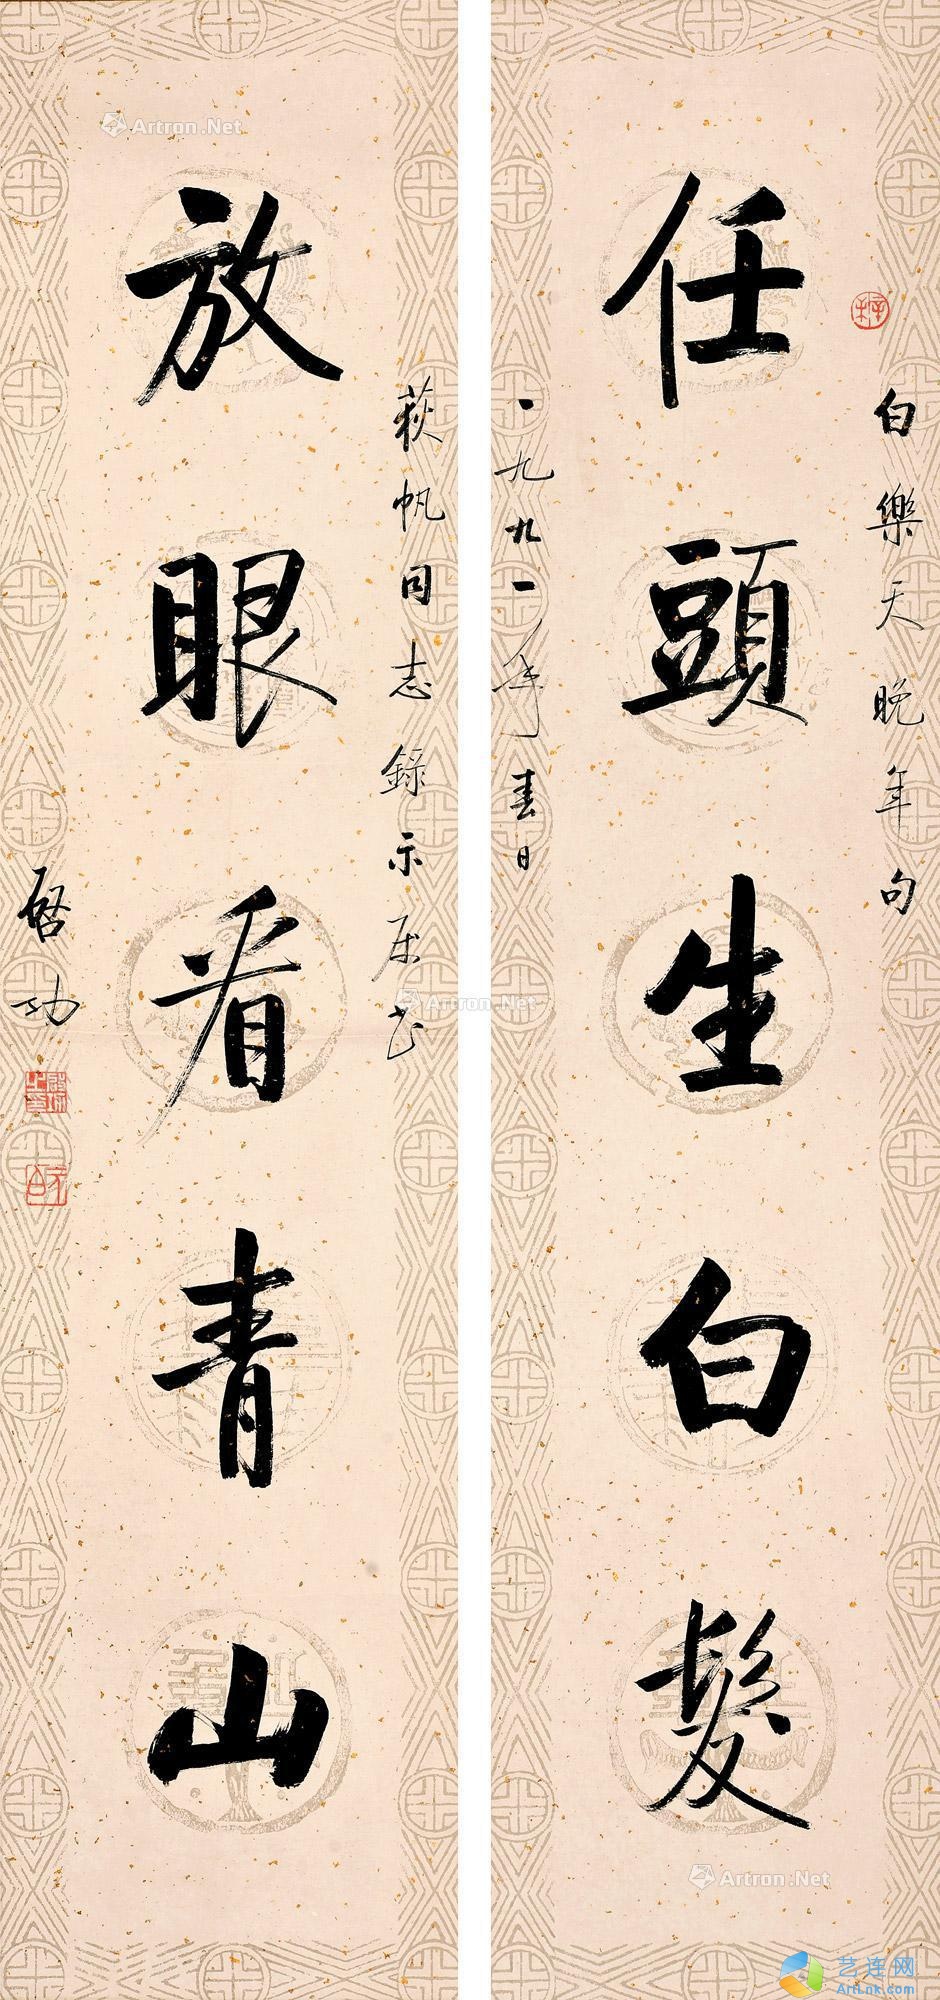 白樂天晚年句
任頭生白髮
一九九一年春日
荻帆同志錄示属书
放眼看青山
启功
Artron.Net
Artron.Net
Artron.Net
艺连网
ArtLnk.com